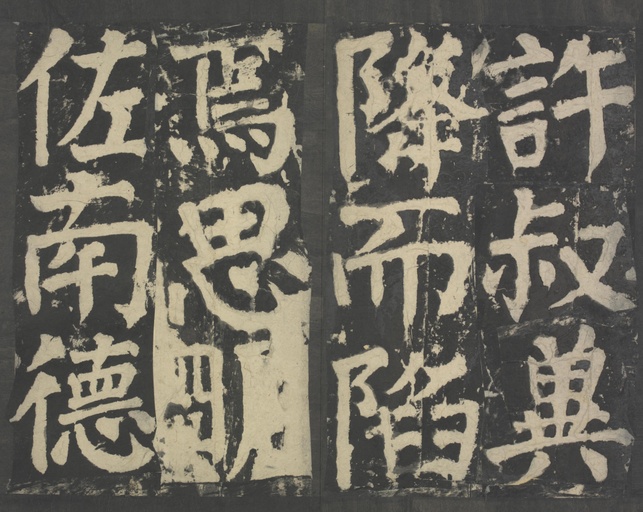 許叔冀
降而陷
焉思明
佐南德